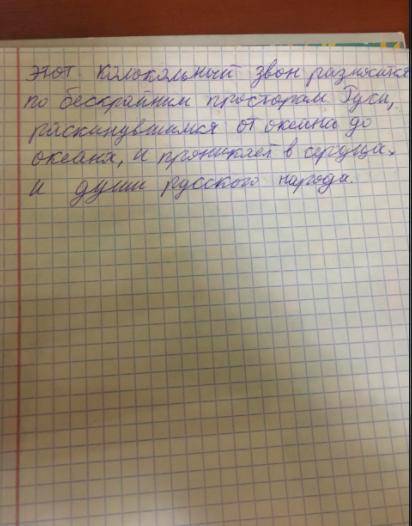 этот колокольный звон разносится
по бескрайним просторам Руси,
раскинувшимся от океана до
океана, и проникает в сердца
и души русского народа.